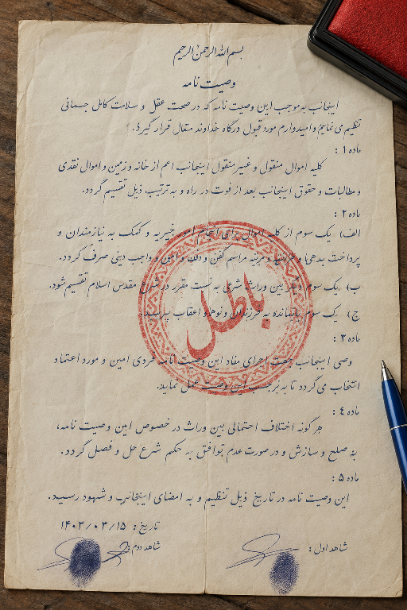 بسم الله الرحمن الرحیم
وصیت نامه
اینجانب به موجب این وصیت نامه که در صحت عقل و سلامت کامل جسمانی
تنظیم می نمایم و امیدوارم مورد قبول درگاه خداوند متعال قرار گیرد.
ماده ۱ :
کلیه اموال منقول و غیر منقول اینجانب اعم از خانه و زمین و اموال نقدی
و مطالبات و حقوق اینجانب بعد از فوت در راه و به ترتیب ذیل تقسیم گردد.
ماده ۲ :
الف) یک سوم از کل اموال برای امور خیریه و کمک به نیازمندان و
پرداخت بدهی و مراسم کفن و دفن و واجب دینی صرف گردد.
ب) یک سوم بین وراث شرعی به نسبت مقرر در شرع مقدس اسلام تقسیم شود.
ج) یک سوم باقیمانده به فرزندان و نوه‌ها و اعقاب
باطل
ماده ۳ :
وصی اینجانب جهت اجرای مفاد این وصیت نامه فردی امین و مورد اعتماد
انتخاب می گردد تا به وصیت عمل نماید.
ماده ۴ :
هر گونه اختلاف احتمالی بین وراث در خصوص این وصیت نامه،
به صلح و سازش و در صورت عدم توافق به حکم شرع حل و فصل گردد.
ماده ۵ :
این وصیت نامه در تاریخ ذیل تنظیم و به امضای اینجانب و شهود رسید.
تاریخ : ۱۴۰۲/۰۳/۱۵
شاهد اول :
شاهد دوم :